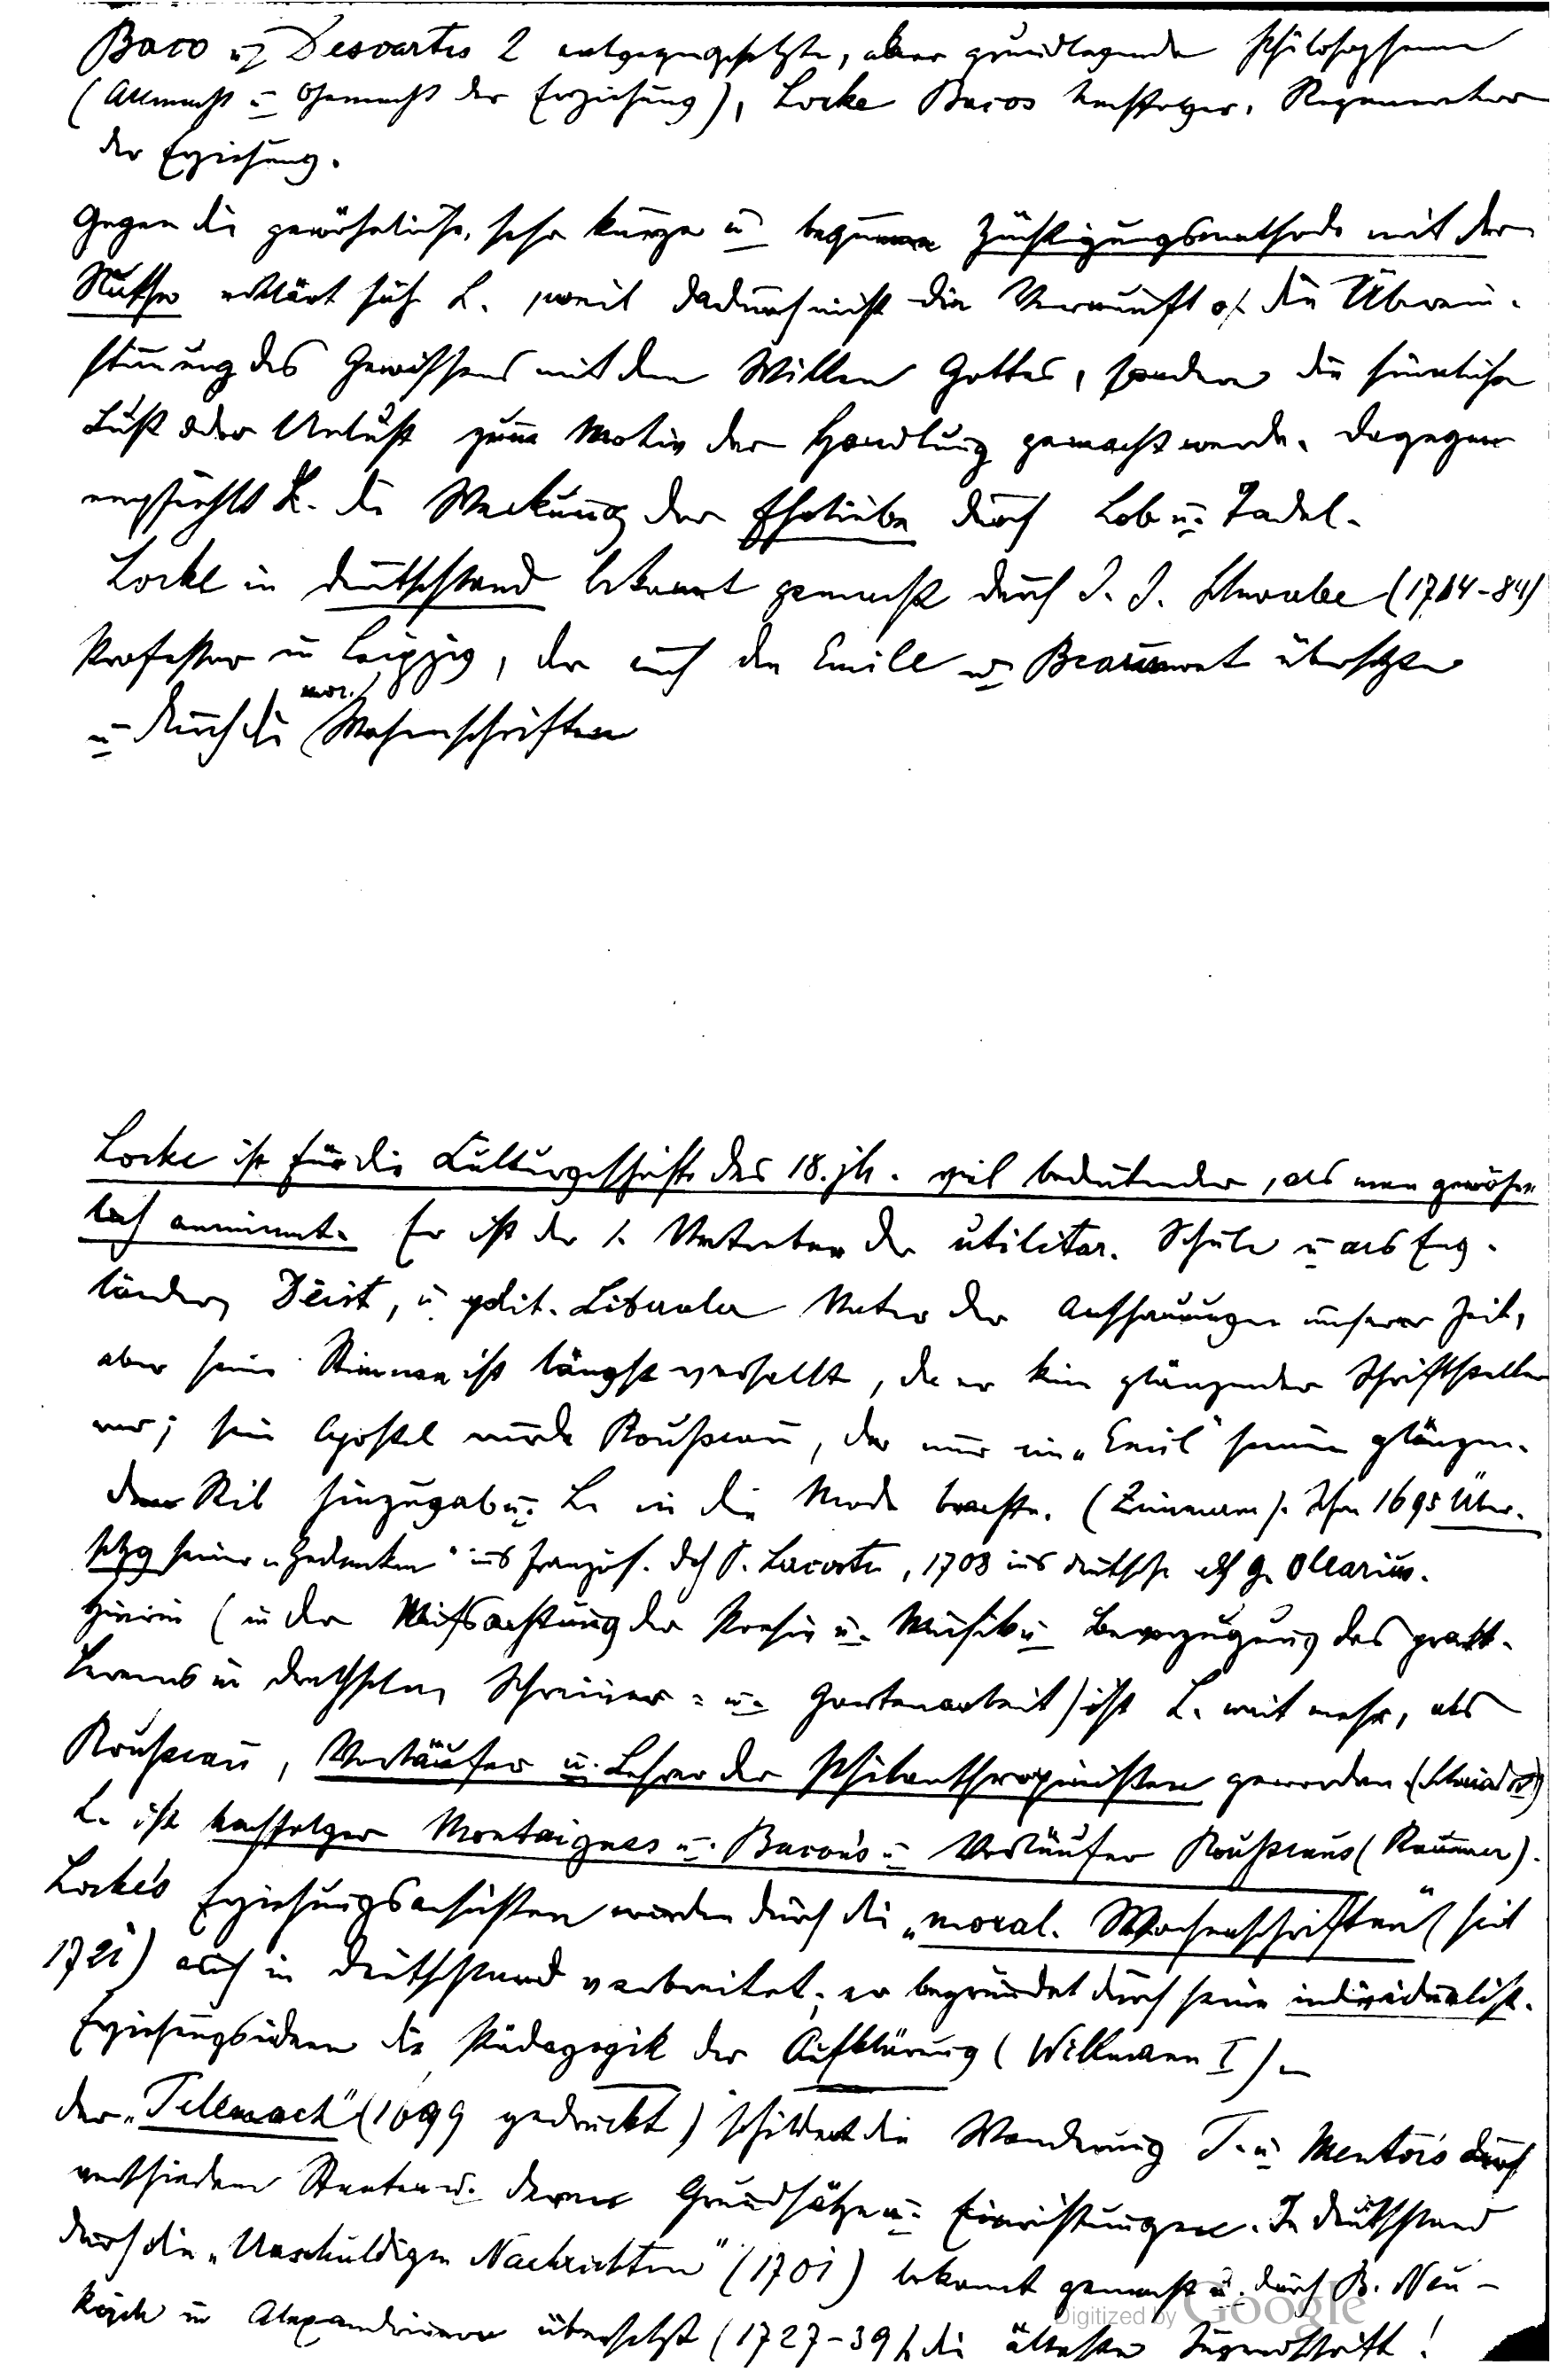 Baco u. Descartes 2 entgegengesetzte, aber grundlegende Philosopheme
(Allmacht u. Ohnmacht der Erziehung), Locke Bacos Nachfolger, Regenerator
der Erziehung.
Gegen die gewöhnliche, sehr kurze u. bequeme Züchtigungsmethode mit der
Ruthe erklärt sich L., weil dadurch nicht die Vernunft o. die Überein-
stimmung des Gewissens mit dem Willen Gottes, sondern die sinnliche
Lust oder Unlust zum Motiv der Handlung gemacht werde. Dagegen
empfiehlt L. die Weckung der Ehrliebe durch Lob u. Tadel.
Locke in Deutschland bekannt gemacht durch J. J. Schwabe (1714-84)
Professor in Leipzig, der auch den Emile u. Beaumont übersetzte
u. durch die mor. Wochenschriften
Locke ist für die Culturgeschichte des 18. Jh. viel bedeutender, als man gewöhn-
lich annimmt. Er ist der 1. Vertreter der utilitar. Schule u. als Eng-
länder, Deist, u. polit. Liberaler Vater der Anschauungen unserer Zeit,
aber seine Stimme ist längst verhallt, da er kein glänzender Schriftsteller
war; sein Apostel wurde Roußeau, der nur im „Emil" seinen glänzen-
den Stil hinzugab u. L. in die Mode brachte. Schon 1695 Über-
setzg seiner „Gedanken" ins Französ. dch P. Lacoste, 1708 ins Deutsche dch G. Olearius.
Hierin (in der Mißachtung der Poesie u. Musik u. Bevorzugung des prakt.
Lernens in Drechseln, Schreiner- u. Gartenarbeit) ist L. weit mehr, als
Roußeau, Vorläufer u. Lehrer der Philanthropinisten geworden
L. ist Nachfolger Montaignes u. Bacon's u. Vorläufer Roußeaus (Raumer).
Locke's Erziehungsansichten wurden durch die „moral. Wochenschriften" (seit
1721) auch in Deutschland verbreitet; er begründet durch seine individualist.
Erziehungsideen die Pädagogik der Aufklärung (Willmann I) –
der „Telemach" (1699 gedruckt) schildert die Wanderung T. u. Mentors durch
verschiedene Staaten u. deren Grundsätze u. Einrichtungen. In Deutschland
durch die „Unschuldigen Nachrichten" (1701) bekannt gemacht u. durch B. Neu-
kirch in Alexandrinern übersetzt (1727-39), die älteste Jugendschrift!
Digitized by Google